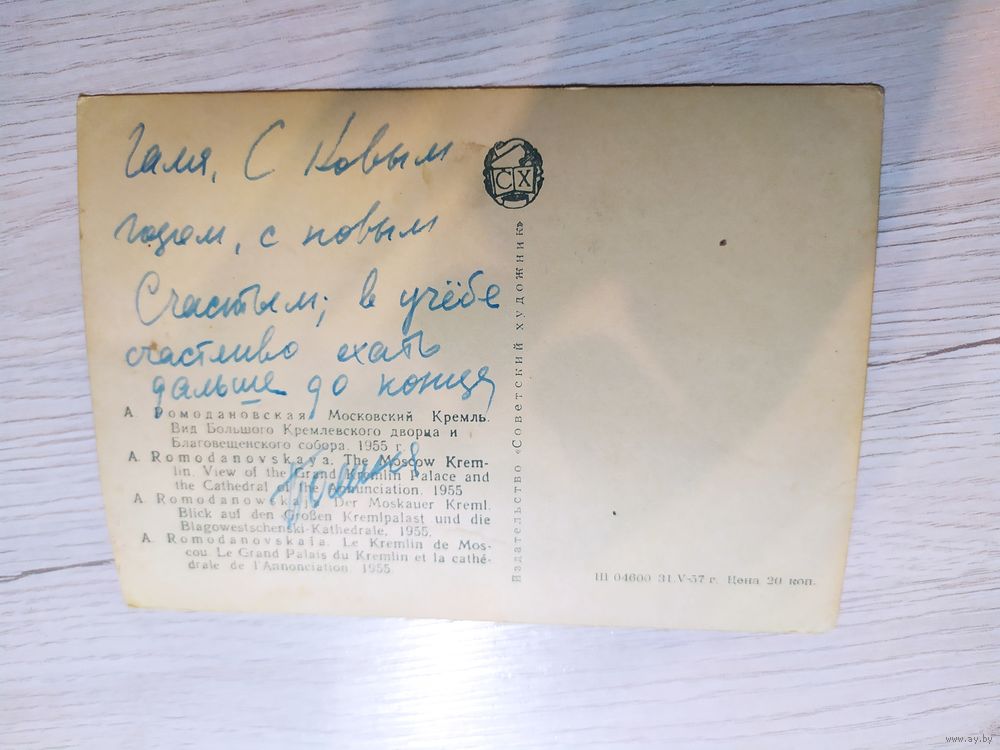 Галя, С Новым
годом, с новым
Счастьем; в учёбе
счастливо ехать
дальше до конца
А. Ромодановская Московский Кремль.
Вид Большого Кремлевского дворца и
Благовещенского собора. 1955 г.
A. Romodanovskaya. The Moscow Krem-
lin. View of the Grand Kremlin Palace and
the Cathedral of the Annunciation. 1955
A. Romodanowskaja. Der Moskauer Kreml.
Blick auf den Großen Kremlpalast und die
Blagowestschenski-Kathedrale. 1955.
A. Romodanovskaïa. Le Kremlin de Mos-
cou. Le Grand Palais du Kremlin et la cathé-
drale de l'Annonciation. 1955
СХ
Издательство «Советский художник»
Ш 04600 31.V-57 г. Цена 20 коп.
www.ay.by